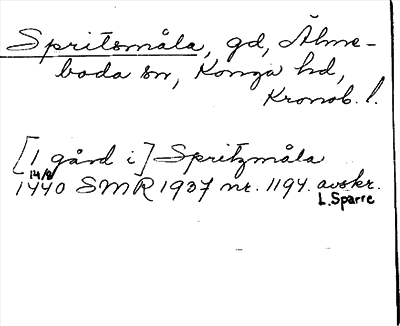 Spritsmåla, gd, Älme-
boda sn, Konga hd,
Kronob. l.
[1 gård i] Spritzmåla
14/8
1440 SMR 1937 nr. 1194. avskr.
L. Sparre